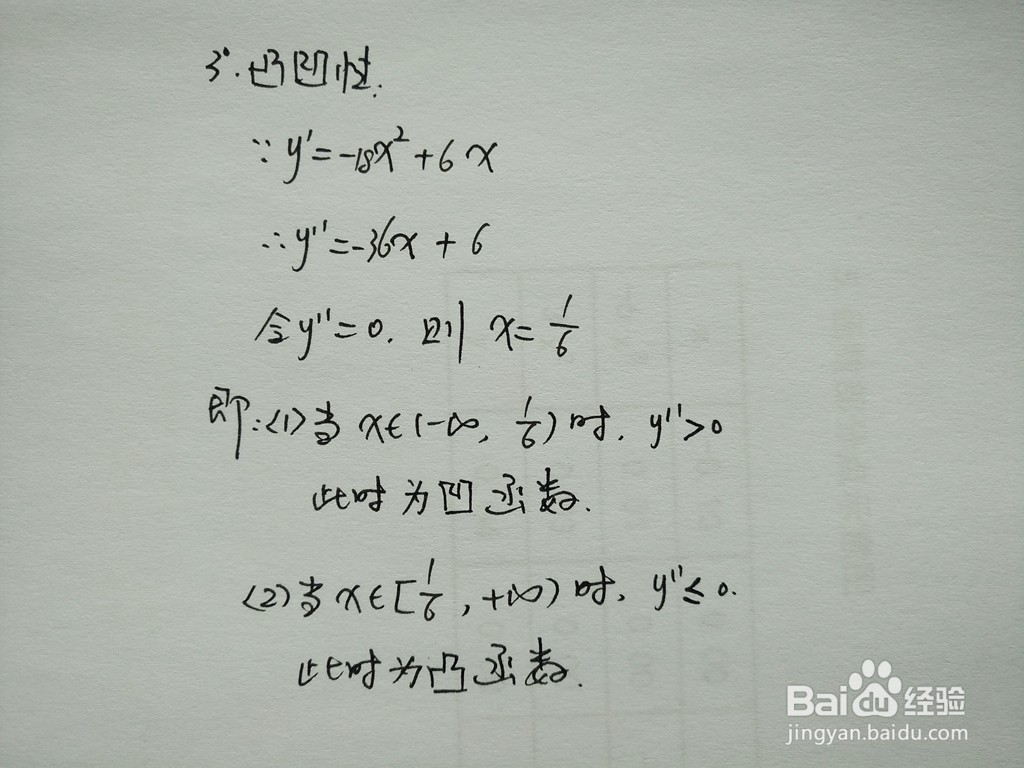 3°.凸凹性.
∵ y'=-18x²+6x
∴ y''=-36x+6
令y''=0. 则 x=1/6
即:<1>当 x∈(-∞, 1/6)时, y''>0
此时为凹函数.
<2>当 x∈[1/6, +∞)时, y''≤0.
此时为凸函数.
Baidu经验
jingyan.baidu.com